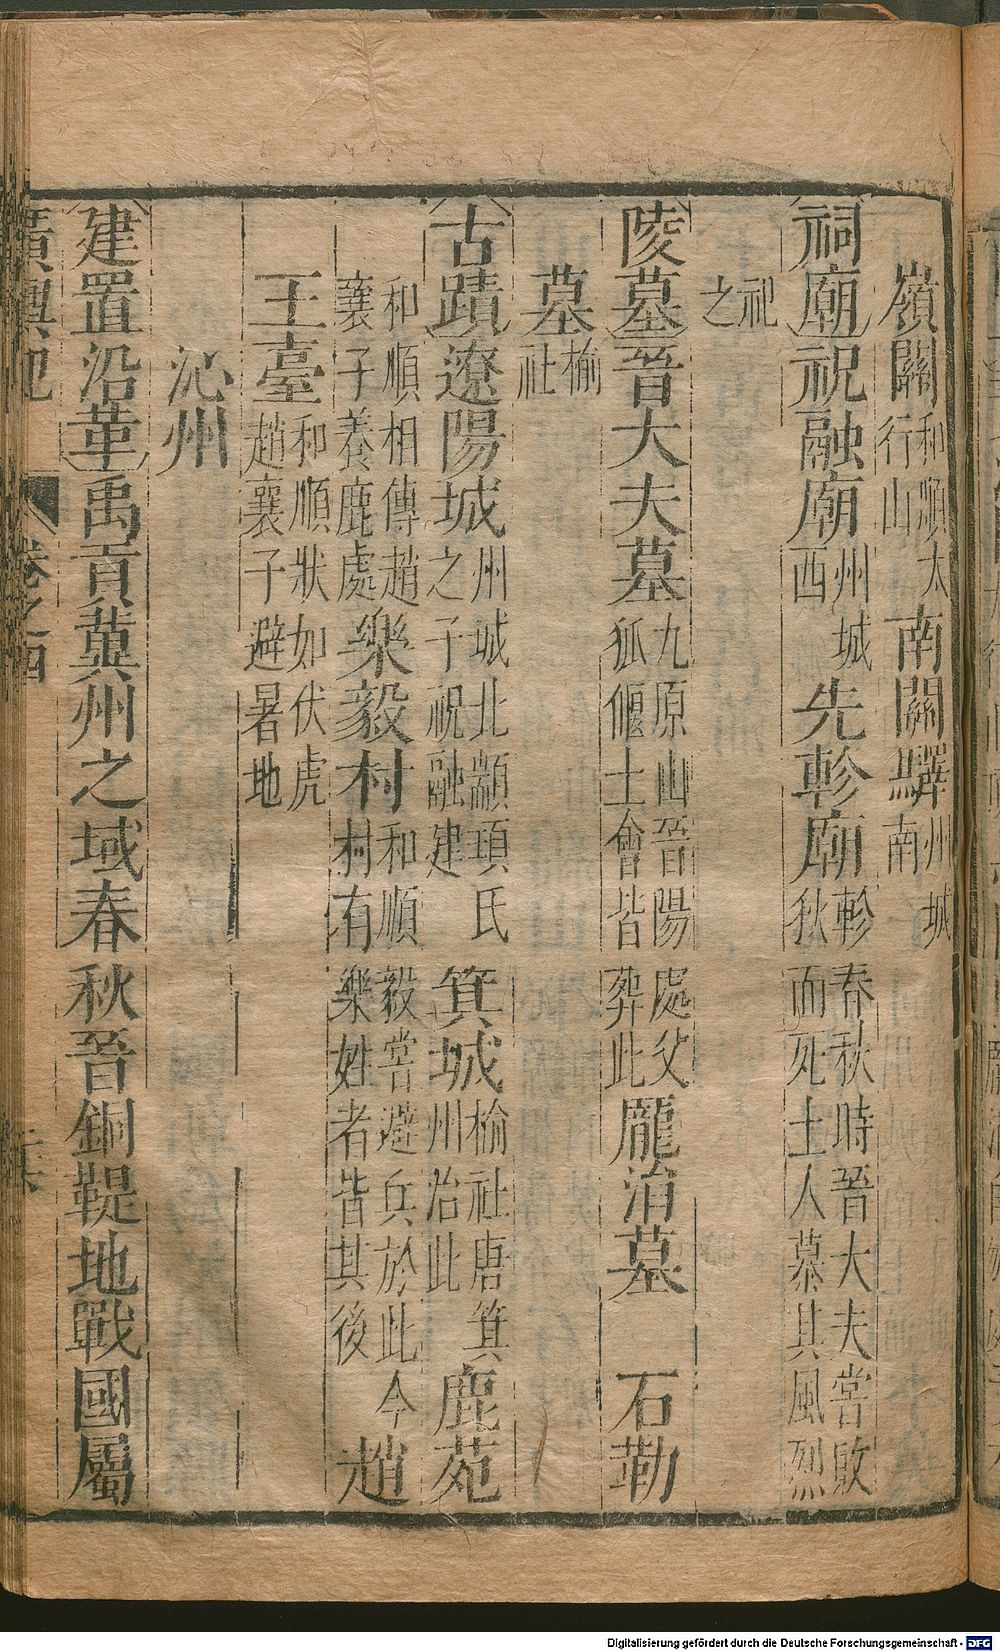 嶺關和順太行山南關驛州城南
祠廟祝融廟州城西先軫廟軫春秋時晉大夫嘗敗狄而死土人慕其風烈
祀之
陵墓晉大夫墓九原山晉陽處父狐偃士會皆葬此龐涓墓 石勒
墓榆社
古蹟遼陽城州城北顓頊氏之子祝融建箕城榆社唐箕州治此鹿苑
和順相傳趙襄子養鹿處樂毅村和順毅嘗避兵於此今村有樂姓者皆其後趙
王臺和順狀如伏虎趙襄子避暑地
沁州
建置沿革禹貢冀州之域春秋晉銅鞮地戰國屬
廣輿記 卷之四
Digitalisierung gefördert durch die Deutsche Forschungsgemeinschaft - DFG